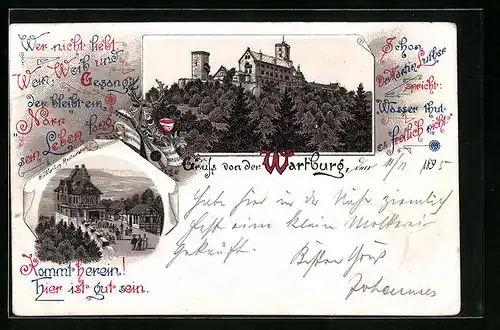 Wer nicht liebt
Wein, Weib und
Gesang
der bleibt ein
"Narr" sein Leben lang
Schon
Dr. Martin Luther
spricht:
Wasser thut
es freilich nicht"
Gruss von der Wartburg, den 11/11 1895
Kommt herein!
Hier ist gut sein.
Habe hier in der Nähe ziemlich
fest eine klein Molkerei
gekauft.
Besten Gruß
Johannes